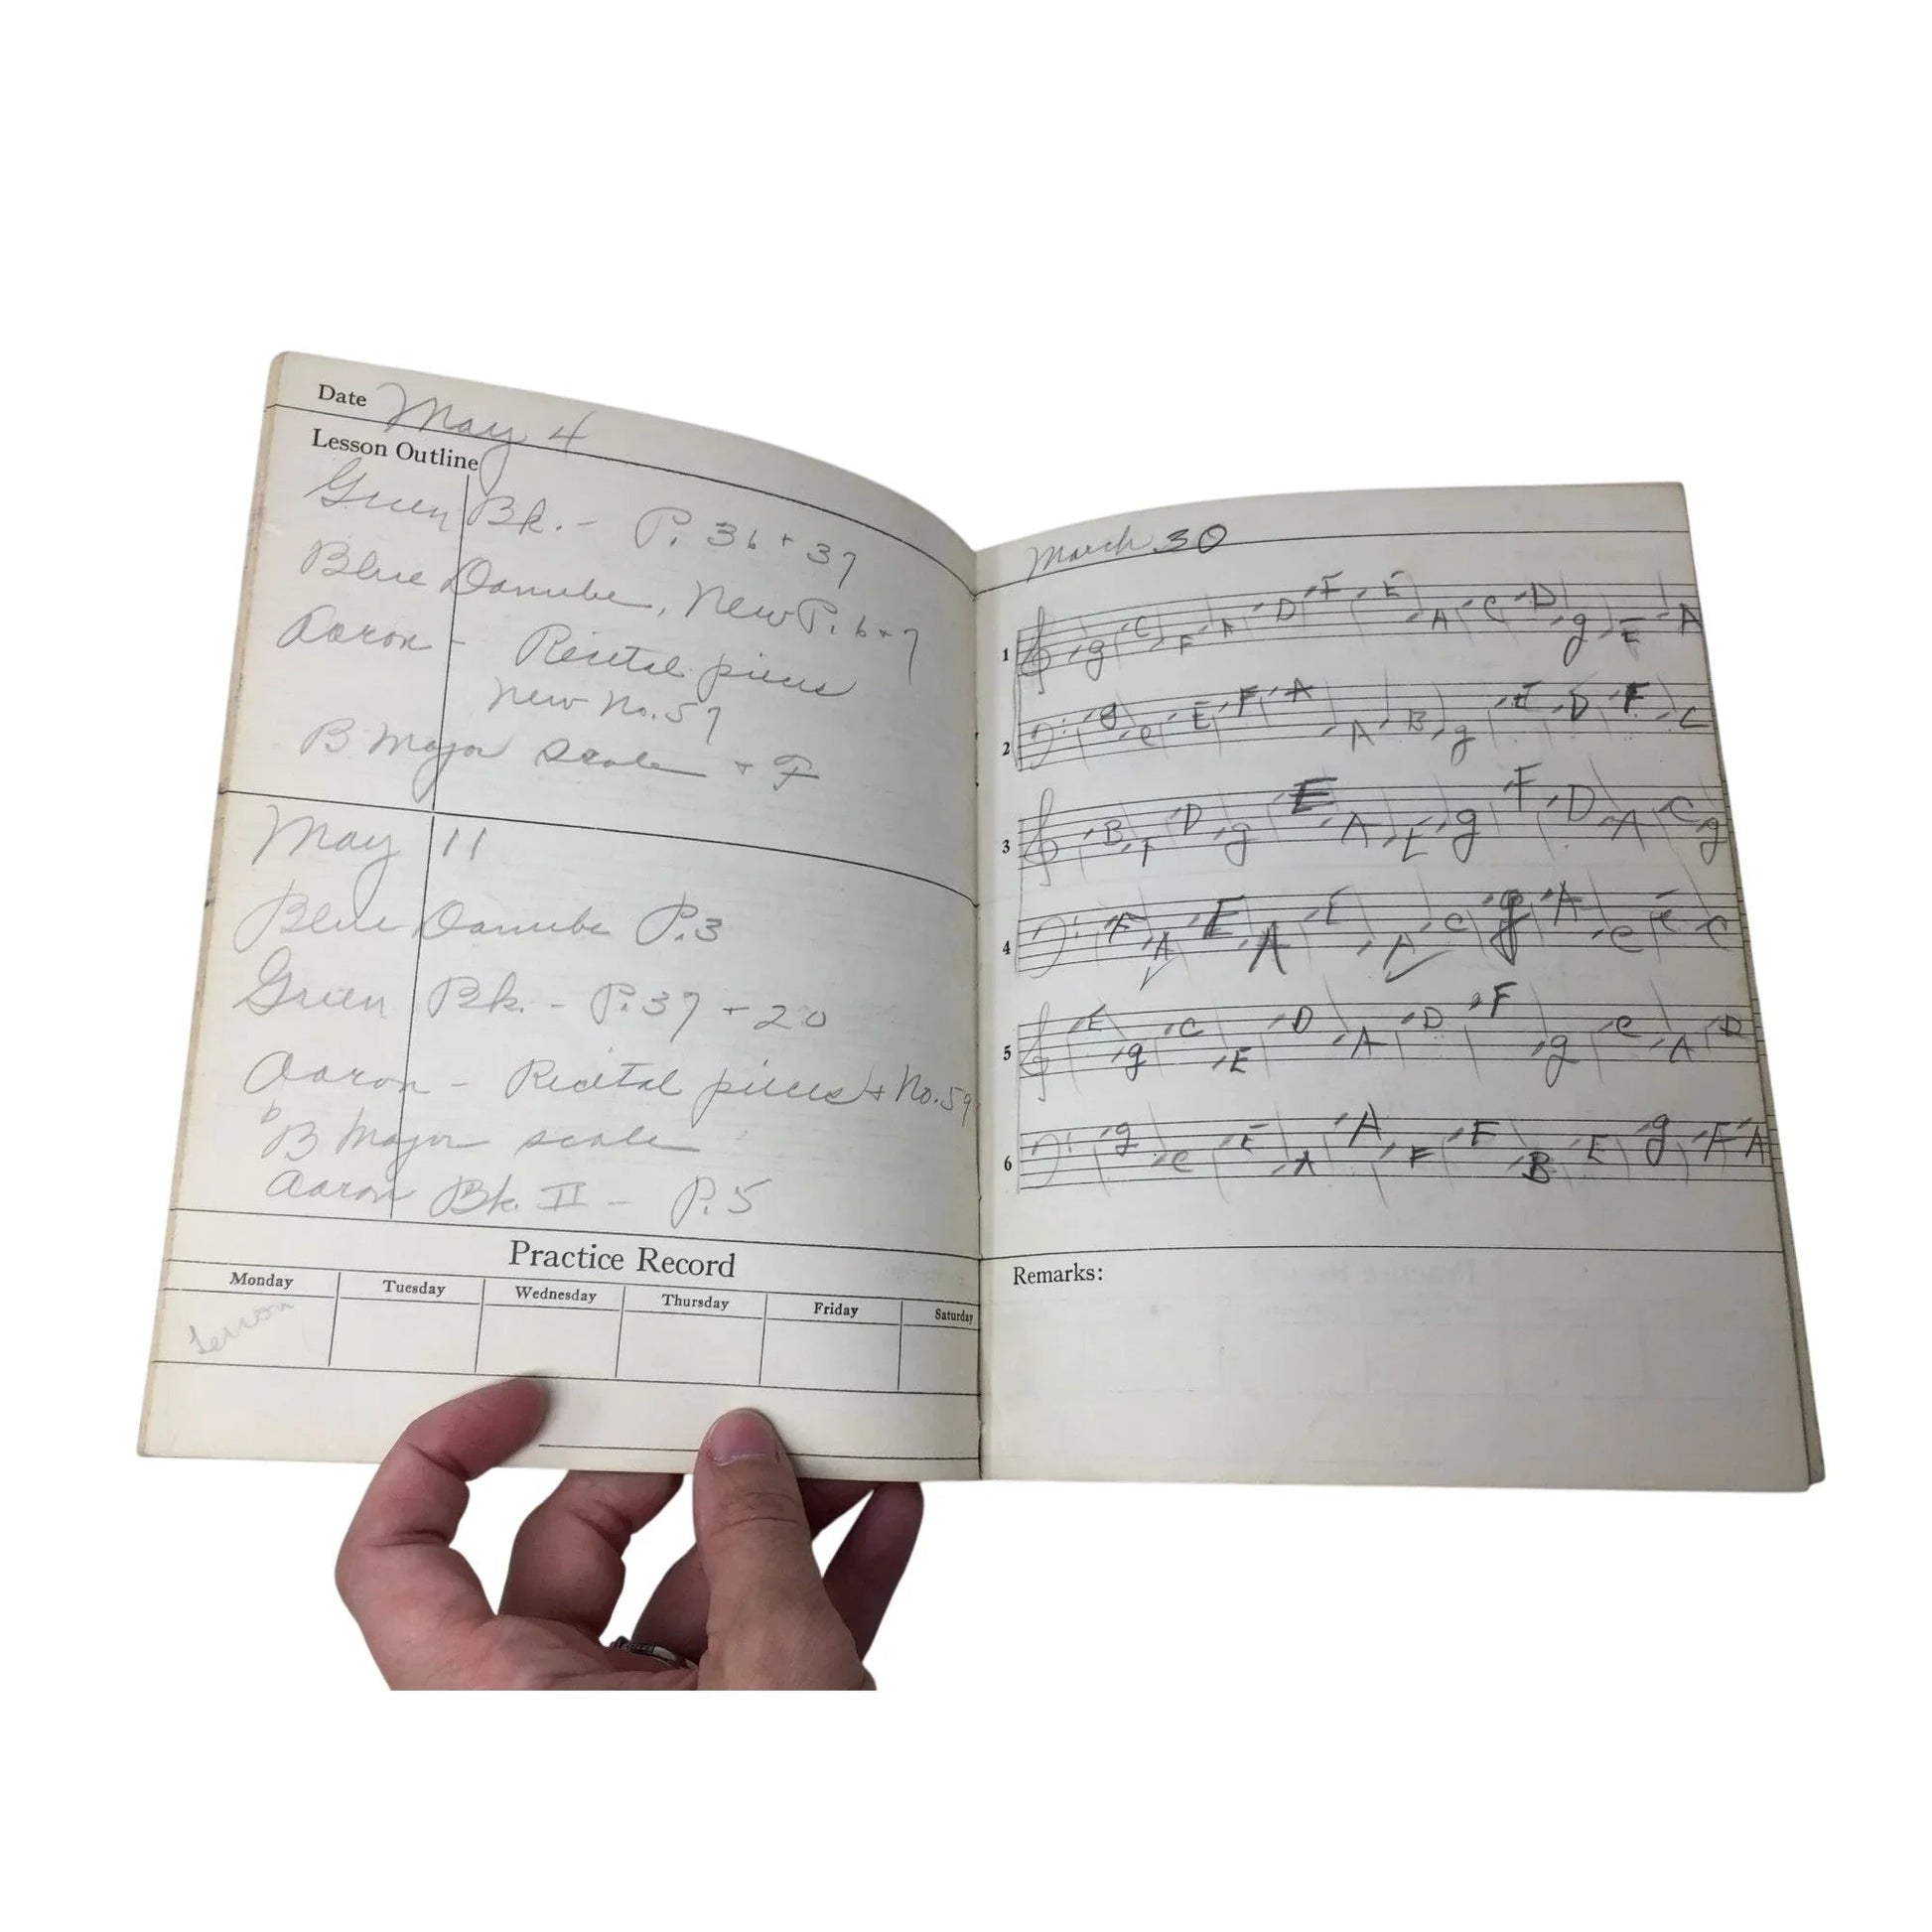 Date May 4
Lesson Outline
Green Bk. - P. 36 + 37
Blue Danube, New P. 6 + 7
Aaron - Recital pieces
New No. 57
B Major scale + F
May 11
Blue Danube P. 3
Green Bk. - P. 37 + 20
Aaron - Recital pieces + No. 59
b B Major scale
Aaron Bk. II - P. 5
Practice Record
Monday Tuesday Wednesday Thursday Friday Saturday
Lesson
March 30
1 g C F A D F E A C D g E A
2 g C E F A A B g E D F C
3 B F D g E A E g F D A C g
4 F A E A E A C g A C E C
5 E g C E D A D F g C A D
6 g C E A A F F B E g F A
Remarks: